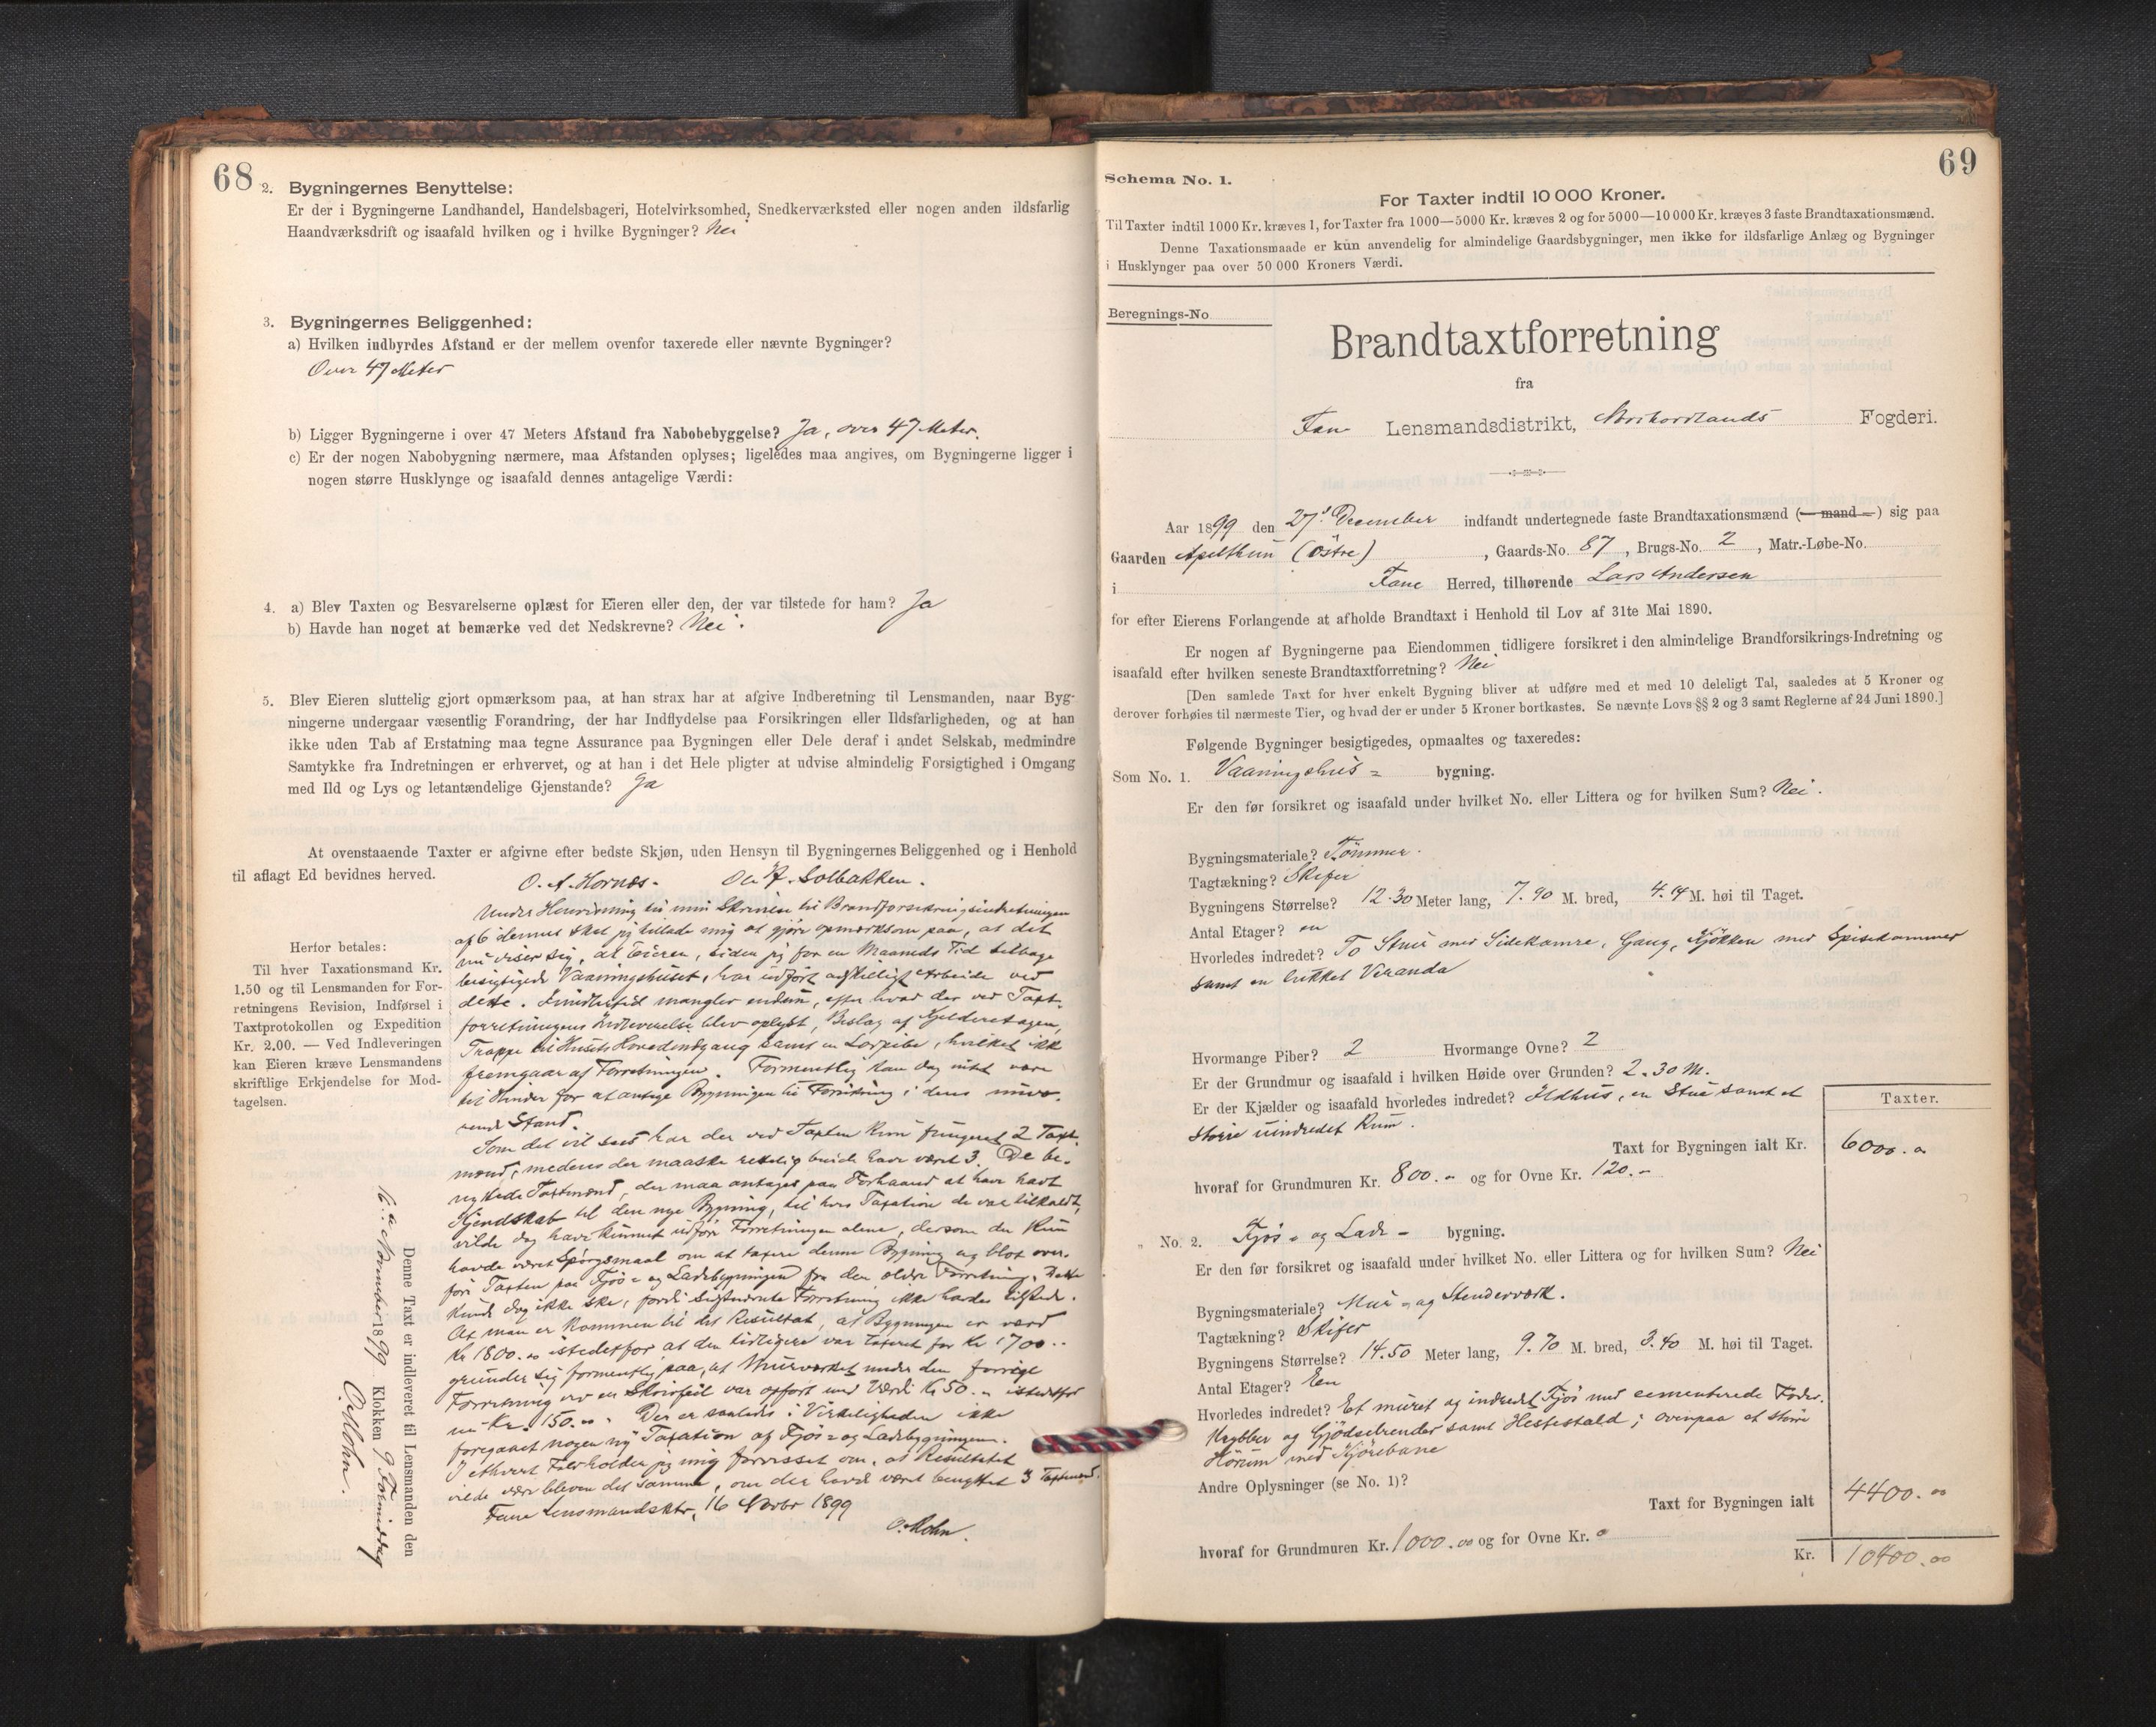 68
2. Bygningernes Benyttelse:
Er der i Bygningerne Landhandel, Handelsbageri, Hotelvirksomhed, Snedkerværksted eller nogen anden ildsfarlig
Haandværksdrift og isaafald hvilken og i hvilke Bygninger? Nei
3. Bygningernes Beliggenhed:
a) Hvilken indbyrdes Afstand er der mellem ovenfor taxerede eller nævnte Bygninger?
Over 47 Meter
b) Ligger Bygningerne i over 47 Meters Afstand fra Nabobebyggelse? Ja, over 47 Meter.
c) Er der nogen Nabobygning nærmere, maa Afstanden oplyses; ligeledes maa angives, om Bygningerne ligger i
nogen større Husklynge og isaafald dennes antagelige Værdi:
4. a) Blev Taxten og Besvarelserne oplæst for Eieren eller den, der var tilstede for ham? Ja
b) Havde han noget at bemærke ved det Nedskrevne? Nei.
5. Blev Eieren sluttelig gjort opmærksom paa, at han strax har at afgive Indberetning til Lensmanden, naar Byg-
ningerne undergaar væsentlig Forandring, der har Indflydelse paa Forsikringen eller Ildsfarligheden, og at han
ikke uden Tab af Erstatning maa tegne Assurance paa Bygningen eller Dele deraf i andet Selskab, medmindre
Samtykke fra Indretningen er erhvervet, og at han i det Hele pligter at udvise almindelig Forsigtighed i Omgang
med Ild og Lys og letantændelige Gjenstande? Ja
At ovenstaaende Taxter er afgivne efter bedste Skjøn, uden Hensyn til Bygningernes Beliggenhed og i Henhold
til aflagt Ed bevidnes herved.
O. A. Hornæs. Ole J. Solbakken.
Under Henvisning til min Skrivelse til Brandforsikringsindretningen
af 6 dennes skal jeg tillade mig at gjøre opmærksom paa, at det
nu viser sig, at Eieren, siden jeg for en Maaneds Tid tilbage
besigtigede Vaaningshuset, har udført adskilligt Arbeide ved
dette. Imidlertid mangler endnu, efter hvad der ved Taxt-
forretningens Indleverelse blev oplyst, Beslag af Kjelderetagen,
Trappe til Husets Hovedindgang samt en Lorpibe, hvilket ikke
fremgaar af Forretningen. Formentlig kan dog intet være
til Hinder for at antage Bygningen til Forsikring i dens nuvæ-
rende Stand.
Som det vil sees har der ved Taxten kun fungeret 2 Taxt-
mænd, medens der maaske rettelig burde have været 3. De be-
nyttede Taxtmænd, der maa antages paa Forhaand at have havt
Kjendskab til den nye Bygning, til hvis Taxation de var tilkaldt,
vilde dog have kunnet udføre Forretningen alene, dersom der kun
havde været Spørgsmaal om at taxere denne Bygning og blot over-
føre Taxten paa Fjøs- og Ladebygningen fra den ældre Forretning. Dette
kunde dog ikke ske, fordi sidstnævnte Forretning ikke havdes tilstede.
At man er kommen til det Resultat, at Bygningen er værd
Kr 1800.00 istedetfor at den tidligere var taxeret for Kr 1700..
grunder sig formentlig paa, at Murværket under den forrige
Forretning ved en Skrivfeil var opført med Værdi Kr 50.- istedetfor
nu Kr. 150.00. Der er saaledes i Virkeligheden ikke
foregaaet nogen ny Taxation af Fjøs- og Ladebygningen.
I ethvert Fald holder jeg mig forvisset om, at Resultatet
vilde være bleven det samme, om der havde været benyttet 3 Taxtmænd.
Fane Lensmandsktr, 16 Novbr 1899
O. Mohn.
Herfor betales:
Til hver Taxationsmand Kr.
1.50 og til Lensmanden for For-
retningens Revision, Indførsel i
Taxtprotokollen og Expedition
Kr. 2.00. — Ved Indleveringen
kan Eieren kræve Lensmandens
skriftlige Erkjendelse for Mod-
tagelsen.
Denne Taxt er indleveret til Lensmanden den
16. November 1899 Klokken 9 Formiddag
O. Mohn.
69
Schema No. 1.
For Taxter indtil 10 000 Kroner.
Til Taxter indtil 1000 Kr. kræves 1, for Taxter fra 1000—5000 Kr. kræves 2 og for 5000—10 000 Kr. kræves 3 faste Brandtaxationsmænd.
Denne Taxationsmaade er kun anvendelig for almindelige Gaardsbygninger, men ikke for ildsfarlige Anlæg og Bygninger
i Husklynger paa over 50 000 Kroners Værdi.
Beregnings-No
Brandtaxtforretning
fra
Fane Lensmandsdistrikt, Nordhordlands Fogderi.
Aar 1899 den 27' December indfandt undertegnede faste Brandtaxationsmænd (— mand —) sig paa
Gaarden Apelthun (Østre), Gaards-No. 87, Brugs-No. 2, Matr.-Løbe-No.
i Fane Herred, tilhørende Lars Andersen
for efter Eierens Forlangende at afholde Brandtaxt i Henhold til Lov af 31te Mai 1890.
Er nogen af Bygningerne paa Eiendommen tidligere forsikret i den almindelige Brandforsikrings-Indretning og
isaafald efter hvilken seneste Brandtaxtforretning? Nei
[Den samlede Taxt for hver enkelt Bygning bliver at udføre med et med 10 deleligt Tal, saaledes at 5 Kroner og
derover forhøies til nærmeste Tier, og hvad der er under 5 Kroner bortkastes. Se nævnte Lovs §§ 2 og 3 samt Reglerne af 24 Juni 1890.]
Følgende Bygninger besigtigedes, opmaaltes og taxeredes:
Som No. 1. Vaaningshus = bygning.
Er den før forsikret og isaafald under hvilket No. eller Littera og for hvilken Sum? Nei.
Bygningsmateriale? Tømmer.
Tagtækning? Skifer
Bygningens Størrelse? 12.30 Meter lang, 7.90 M. bred, 4.14 M. høi til Taget.
Antal Etager? en
Hvorledes indredet? To Stuer med Sidekamre, Gang, Kjøkken med Spisekammer
samt en lukket Veranda
Hvormange Piber? 2 Hvormange Ovne? 2
Er der Grundmur og isaafald i hvilken Høide over Grunden? 2.30 M.
Er der Kjælder og isaafald hvorledes indredet? Ildhus, en Stue samt et
større uindredet Rum.
Taxter.
Taxt for Bygningen ialt Kr. 6000.00
hvoraf for Grundmuren Kr. 800.- og for Ovne Kr. 120.-
„ No. 2. Fjøs = og Lade - bygning.
Er den før forsikret og isaafald under hvilket No. eller Littera og for hvilken Sum? Nei
Bygningsmateriale? Mur - og Stenderværk.
Tagtækning? Skifer
Bygningens Størrelse? 14.50 Meter lang, 9.70 M. bred, 3.40 M. høi til Taget.
Antal Etager? Een
Hvorledes indredet? Et muret og indredet Fjøs med cementerede Foder-
krybber og Gjødselrender samt Hestestald; ovenpaa et større
Hørum med Kjørebane
Andre Oplysninger (se No. 1)?
Taxt for Bygningen ialt 4400.00
hvoraf for Grundmuren Kr. 1000.00 og for Ovne Kr. 0
Kr. 10400.00